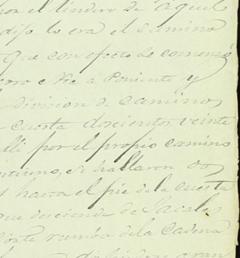 por el lindero de aquel
dijo lo era el camino
que con efecto se comenzó
a Poniente y
division de caminos
cuesta doscientos veinte
allí por el propio camino
se hallaron dos
hasta el pie de la cuesta
que desciende de
rumbo de la Cadena